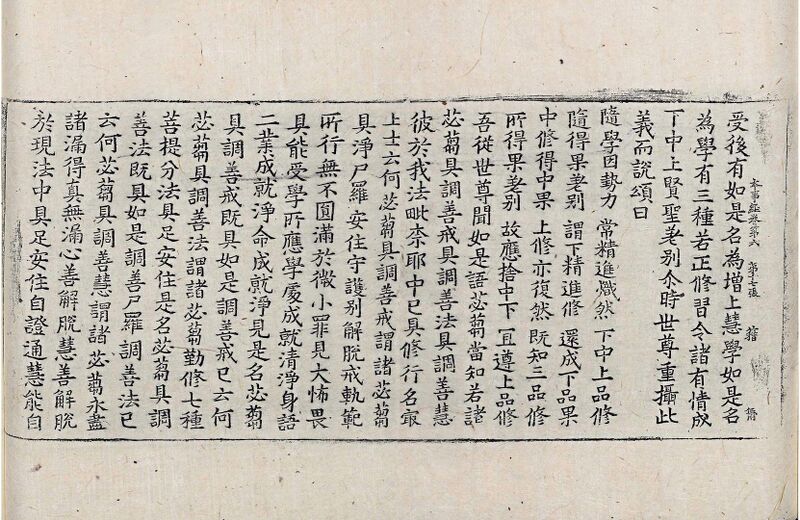 受後有如是名為增上慧學如是名
本事經卷第六　第十七張
為學有三種若正修習令諸有情成
下中上賢聖差别尒時世尊重攝此
義而說頌曰
隨學因勢力　常精進熾然　下中上品修
隨得果差别　謂下精進修　還成下品果
中修得中果　上修亦復然　既知三品修
所得果差别　故應捨中下　㝡遵上品修
吾從世尊聞如是語苾蒭當知若諸
苾蒭具調善戒具調善法具調善慧
彼於我法毗柰耶中已具修行名㝡
上士云何苾蒭具調善戒謂諸苾蒭
具淨尸羅安住守護别解脫戒軌範
所行無不圓滿於微小罪見大怖畏
具能受學所應學處成就清淨身語
二業成就淨命成就淨見是名苾蒭
具調善戒既具如是調善戒已云何
苾蒭具調善法謂諸苾蒭勤修七種
菩提分法具足安住是名苾蒭具調
善法既具如是調善尸羅調善法已
云何苾蒭具調善慧謂諸苾蒭永盡
諸漏得真無漏心善解脫慧善解脫
於現法中具足安住自證通慧能自